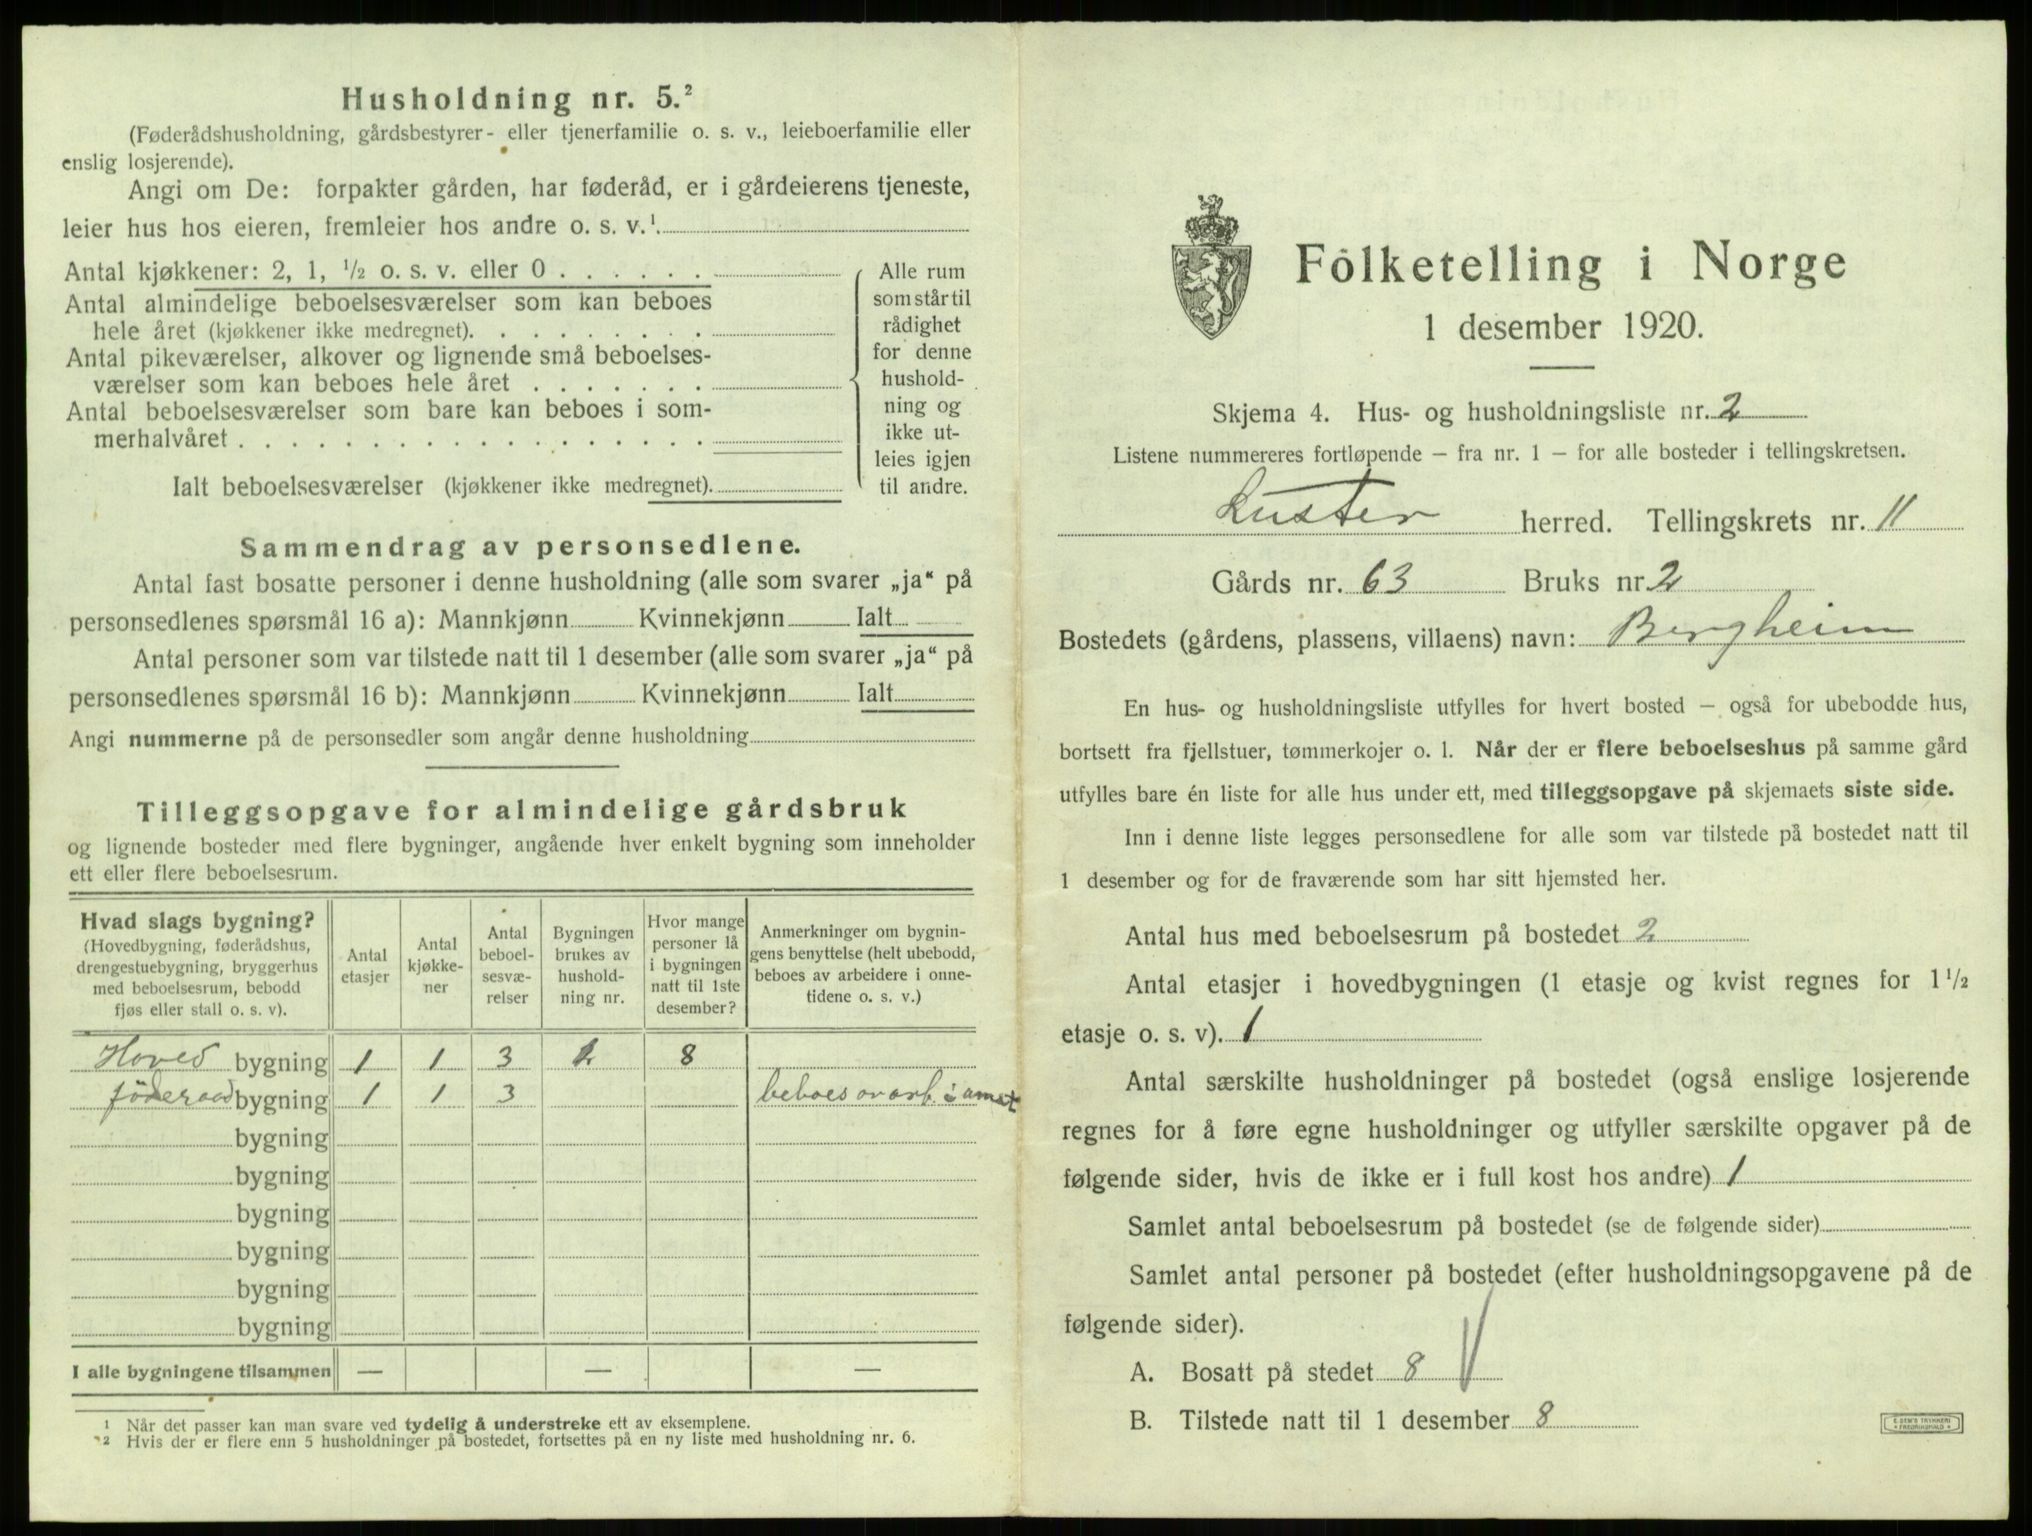 Husholdning nr. 5.²
(Føderådshusholdning, gårdsbestyrer- eller tjenerfamilie o. s. v., leieboerfamilie eller
enslig losjerende).
Angi om De: forpakter gården, har føderåd, er i gårdeierens tjeneste,
leier hus hos eieren, fremleier hos andre o. s. v.¹
Antal kjøkkener: 2, 1, ½ o. s. v. eller 0 . . . . . .
Antal almindelige beboelsesværelser som kan beboes
hele året (kjøkkener ikke medregnet). . . . . . . . .
Antal pikeværelser, alkover og lignende små beboelses-
værelser som kan beboes hele året . . . . . . .
Antal beboelsesværelser som bare kan beboes i som-
merhalvåret . . . . . . . . . . . . . . . . . .
Ialt beboelsesværelser (kjøkkener ikke medregnet).
Alle rum
som står til
rådighet
for denne
hushold-
ning og
ikke ut-
leies igjen
til andre.
Sammendrag av personsedlene.
Antal fast bosatte personer i denne husholdning (alle som svarer „ja“ på
personsedlenes spørsmål 16 a): Mannkjønn Kvinnekjønn Ialt
Antal personer som var tilstede natt til 1 desember (alle som svarer „ja“ på
personsedlenes spørsmål 16 b): Mannkjønn Kvinnekjønn Ialt
Angi nummerne på de personsedler som angår denne husholdning
Tilleggsopgave for almindelige gårdsbruk
og lignende bosteder med flere bygninger, angående hver enkelt bygning som inneholder
ett eller flere beboelsesrum.
Hvad slags bygning?
(Hovedbygning, føderådshus,
drengestuebygning, bryggerhus
med beboelsesrum, bebodd
fjøs eller stall o. s. v).
Antal
etasjer
Antal
kjøkke-
ner
Antal
beboel-
sesvæ-
relser
Bygningen
brukes av
hushold-
ning nr.
Hvor mange
personer lå
i bygningen
natt til 1ste
desember?
Anmerkninger om bygnin-
gens benyttelse (helt ubebodd,
beboes av arbeidere i onne-
tidene o. s. v.)
Hoved bygning 1 1 3 1 8
föderaad bygning 1 1 3 beboes av arb.
bygning
bygning
bygning
bygning
bygning
bygning
I alle bygningene tilsammen — — —
¹ Når det passer kan man svare ved tydelig å understreke ett av eksemplene.
² Hvis der er flere enn 5 husholdninger på bostedet, fortsettes på en ny liste med husholdning nr. 6.
Folketelling i Norge
1 desember 1920.
Skjema 4. Hus- og husholdningsliste nr. 2
Listene nummereres fortløpende – fra nr. 1 – for alle bosteder i tellingskretsen.
Luster herred. Tellingskrets nr. 11
Gårds nr. 63 Bruks nr. 2
Bostedets (gårdens, plassens, villaens) navn: Bergheim
En hus- og husholdningsliste utfylles for hvert bosted – også for ubebodde hus,
bortsett fra fjellstuer, tømmerkojer o. l. Når der er flere beboelseshus på samme gård
utfylles bare én liste for alle hus under ett, med tilleggsopgave på skjemaets siste side.
Inn i denne liste legges personsedlene for alle som var tilstede på bostedet natt til
1 desember og for de fraværende som har sitt hjemsted her.
Antal hus med beboelsesrum på bostedet 2
Antal etasjer i hovedbygningen (1 etasje og kvist regnes for 1½
etasje o. s. v). 1
Antal særskilte husholdninger på bostedet (også enslige losjerende
regnes for å føre egne husholdninger og utfyller særskilte opgaver på de
følgende sider, hvis de ikke er i full kost hos andre) 1
Samlet antal beboelsesrum på bostedet (se de følgende sider)
Samlet antal personer på bostedet (efter husholdningsopgavene på de
følgende sider).
A. Bosatt på stedet 8
B. Tilstede natt til 1 desember 8